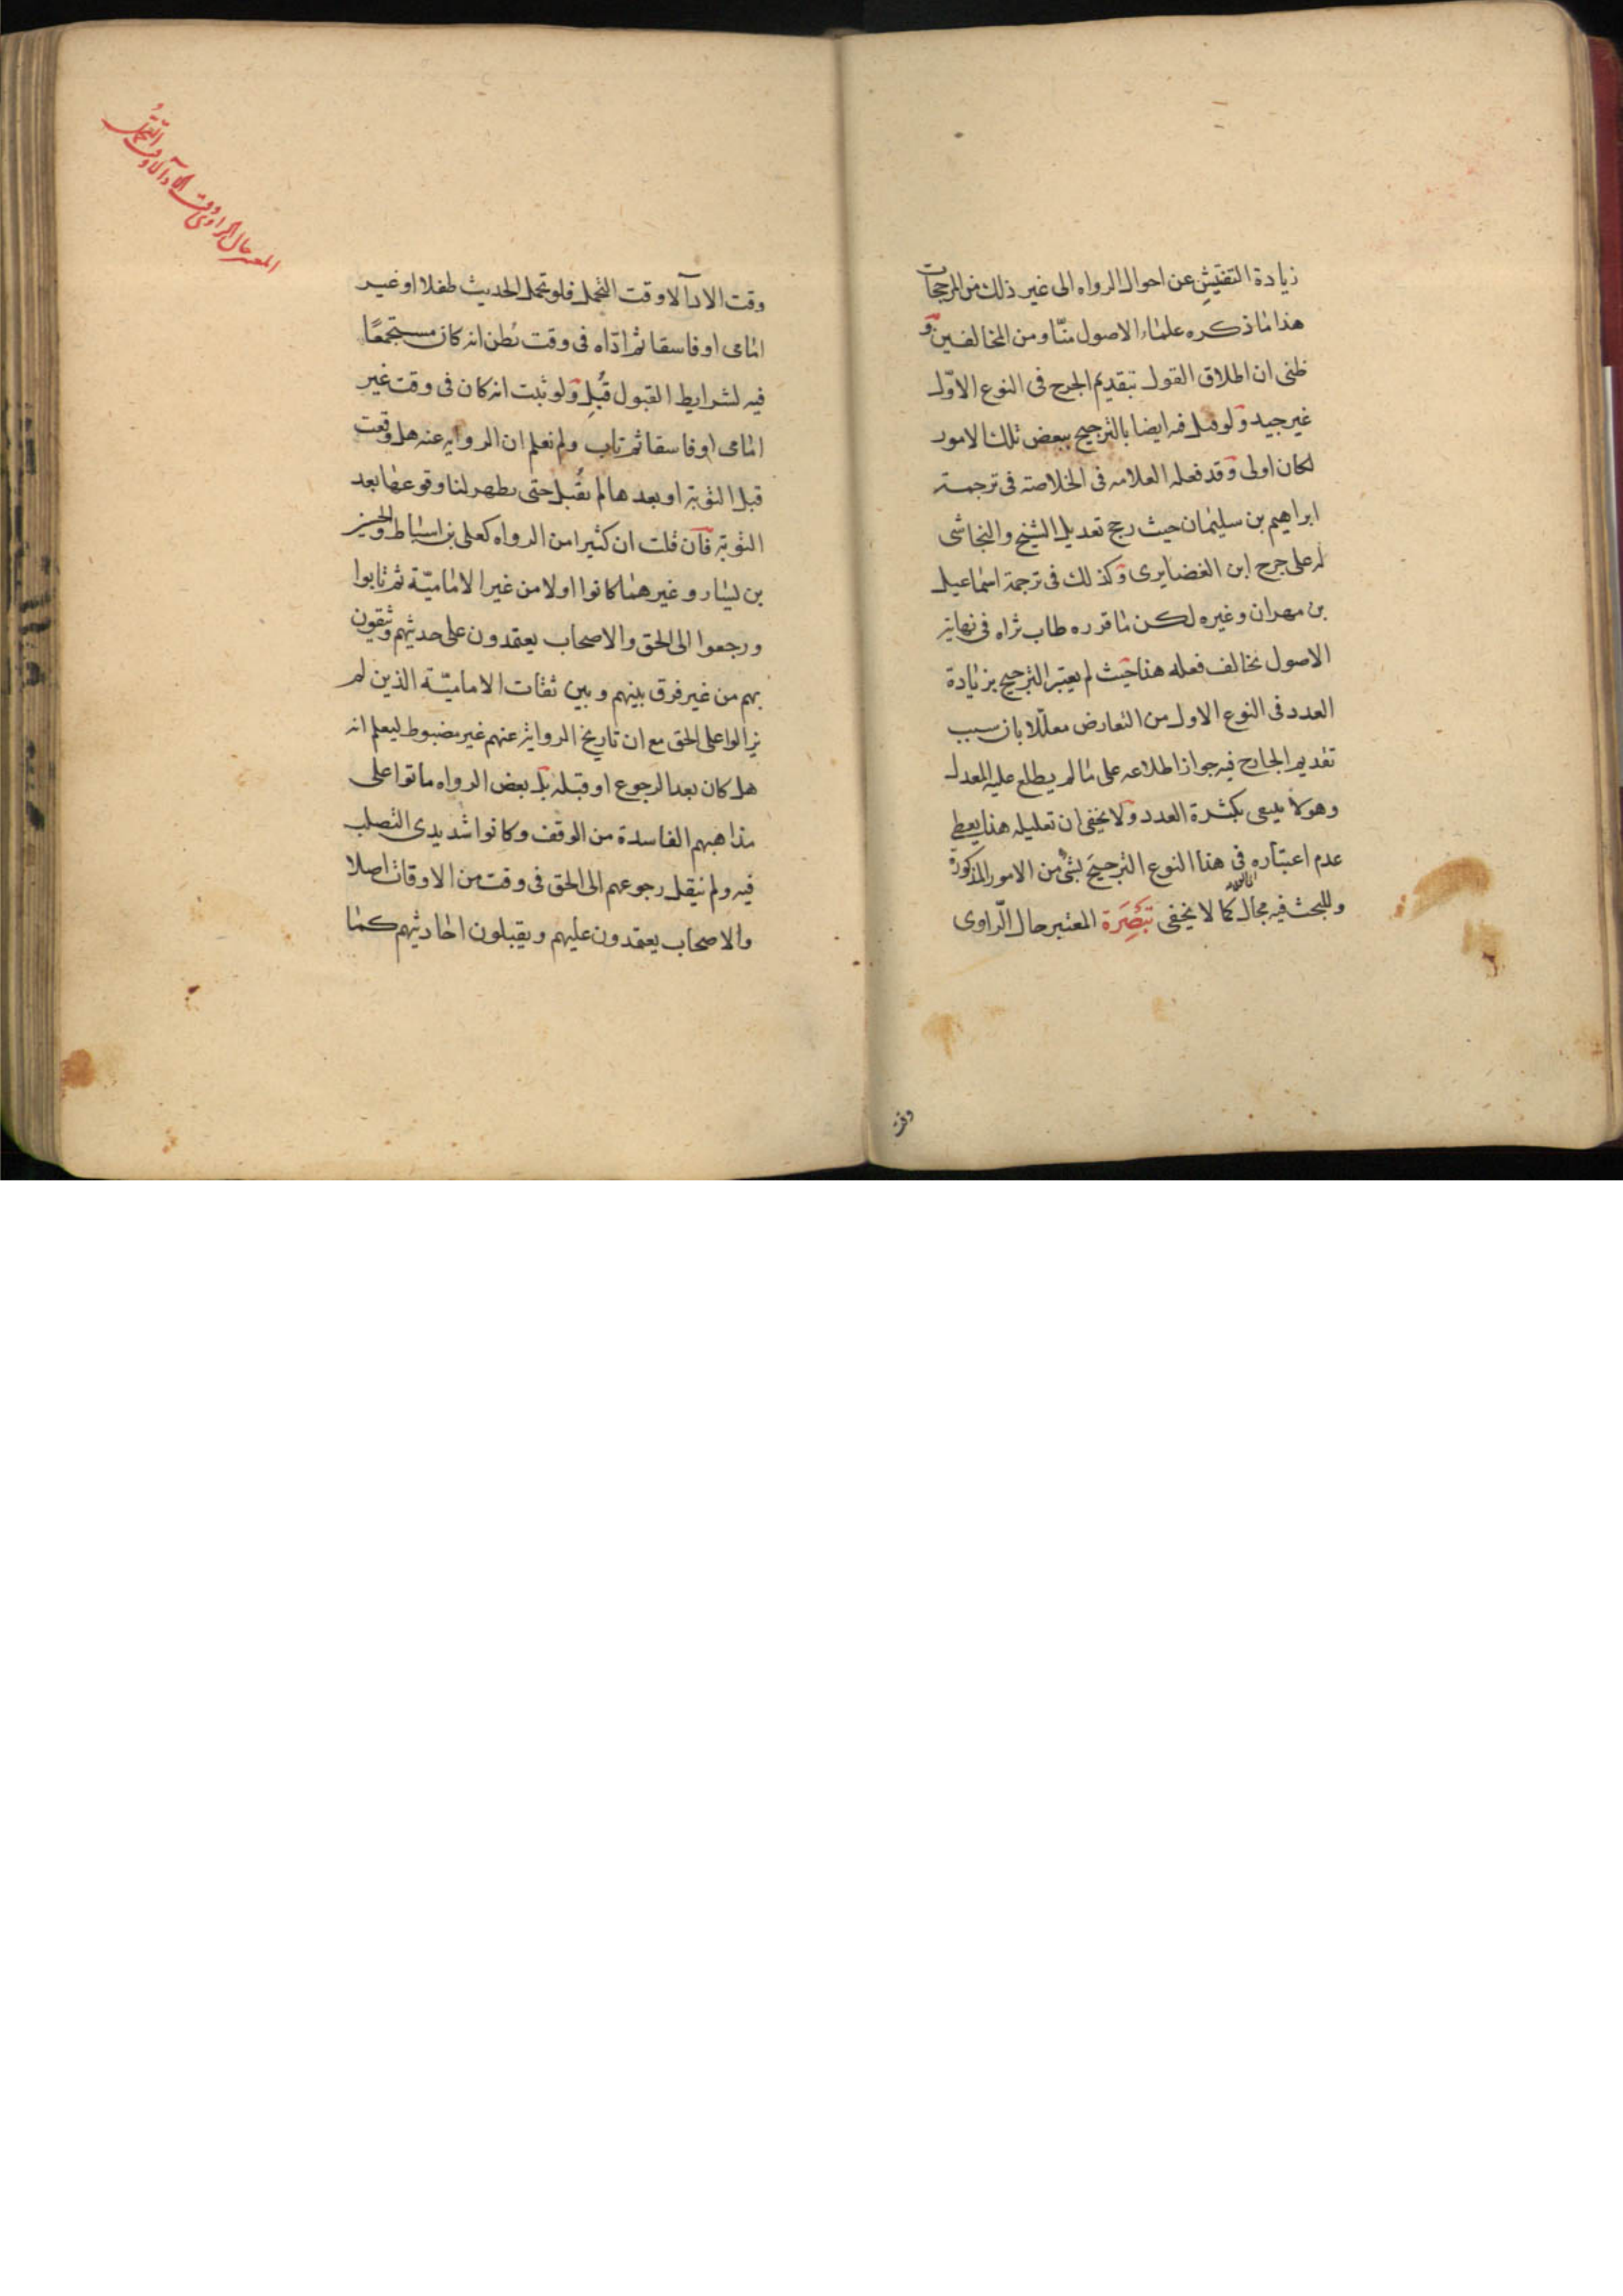 زيادة التفتيش عن احوال الرواه الى غير ذلك من المرجحات
هذا ما ذكره علماء الاصول منّا ومن المخالفين و
ظنى ان اطلاق القول بتقديم الجرح فى النوع الاوّل
غير جيد ولو قيل فيه ايضا بالترجيح ببعض تلك الامور
لكان اولى وقد فعله العلامه فى الخلاصة فى ترجمة
ابراهيم بن سليمان حيث رجح تعديل الشيخ والنجاشى
له على جرح ابن الغضايرى وكذلك فى ترجمة اسماعيل
بن مهران وغيره لكن ما قرره طاب ثراه فى نهاية
الاصول يخالف فعله هنا حيث لم يعتبر الترجيح بزيادة
العدد فى النوع الاول من التعارض معلّلا بان سبب
تقديم الجارح فيه جواز اطلاعه على ما لم يطلع عليه المعدل
وهو لا ينتفى بكثرة العدد ولا يخفى ان تعليله هذا يعطى
عدم اعتباره فى هذا النوع الترجيح بشئ من الامور المذكورة
وللبحث فيه مجال كما لا يخفى تبصرة المعتبر حال الرّاوى
وقت
وقت الادآ لا وقت التحمل فلو تحمل الحديث طفلا او غير
امامى او فاسقا ثم ادّاه فى وقت يظن انه كان مستجمعًا
فيه لشرايط القبول قُبل ولو ثبت انه كان فى وقت غير
امامى او فاسقا ثم تاب ولم نعلم ان الروايه عنه هل وقعت
قبل التوبة او بعدها لم تقبل حتى يظهر لنا وقوعها بعد
التوبة فان قلت ان كثيرا من الرواه كعلى بن اسباط والحسين
بن يسار وغيرهما كانوا اولا من غير الاماميّة ثم تابوا
ورجعوا الى الحق والاصحاب يعتمدون على حديثهم ويثقون
بهم من غير فرق بينهم وبين ثقات الاماميّة الذين لم
يزالوا على الحق مع ان تاريخ الرواية عنهم غير مضبوط ليعلم انه
هل كان بعد الرجوع او قبله بل بعض الرواه ماتوا على
مذاهبهم الفاسدة من الوقف وكانوا شديدى التصلب
فيه ولم ينقل رجوعهم الى الحق فى وقت من الاوقات اصلا
والاصحاب يعتمدون عليهم ويقبلون احاديثهم كما
المعتبر حال الراوى وقت الادآ لا وقت التحمل